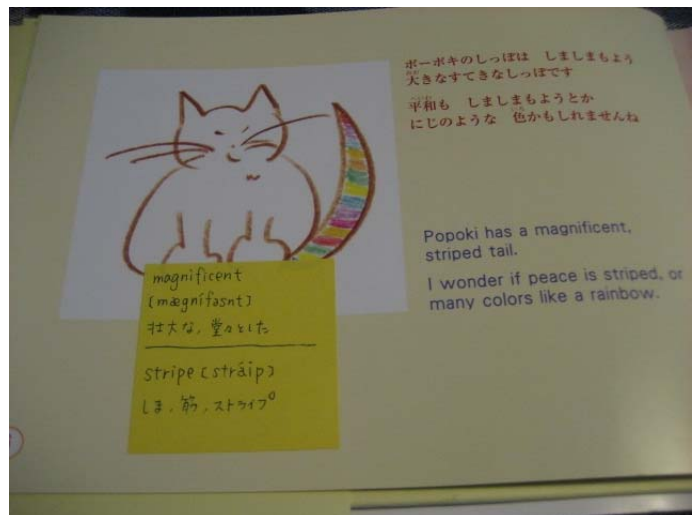 ポーポキのしっぽは しましまもよう
大きなすてきなしっぽです
平和も しましまもようとか
にじのような 色かもしれませんね
Popoki has a magnificent,
striped tail.
I wonder if peace is striped, or
many colors like a rainbow.
magnificent
[mægnífəsnt]
壮大な, 堂々とした
stripe [stráip]
しま, 筋, ストライプ